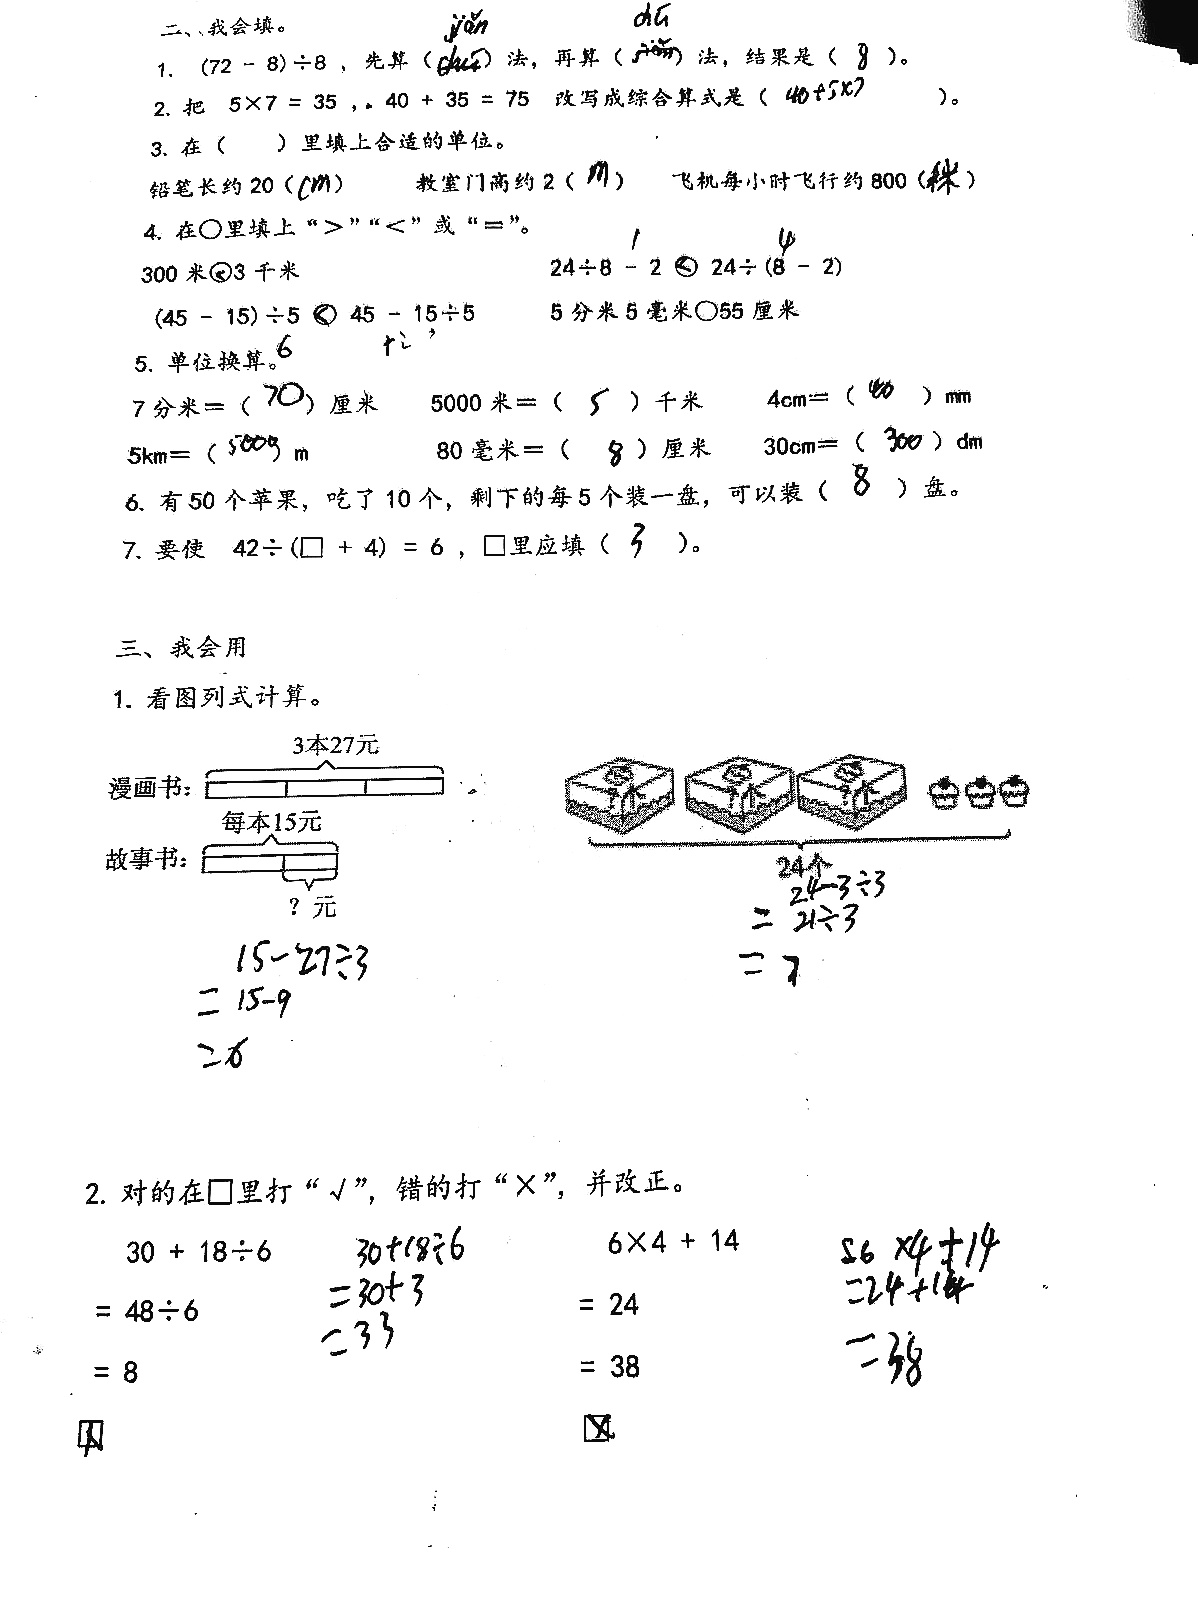 二、我会填。
jiǎn chú
1. (72 - 8)÷8，先算（）法，再算（）法，结果是（8）。
2. 把 5×7 = 35，40 + 35 = 75 改写成综合算式是（40+5×7）。
3. 在（ ）里填上合适的单位。
铅笔长约20（cm） 教室门高约2（m） 飞机每小时飞行约800（米）
4. 在○里填上“>”“<”或“=”。
1 4
300米3千米 24÷8 - 2 < 24÷(8 - 2)
(45 - 15)÷5 < 45 - 15÷5 5分米5毫米○55厘米
6
5. 单位换算。
7分米=（70）厘米 5000米=（5）千米 4cm=（40）mm
5km=（5000）m 80毫米=（8）厘米 30cm=（300）dm
6. 有50个苹果，吃了10个，剩下的每5个装一盘，可以装（8）盘。
7. 要使 42÷(□ + 4) = 6，□里应填（3）。
三、我会用
1. 看图列式计算。
3本27元
漫画书：
每本15元
故事书：
? 元
15-27÷3
=15-9
=6
24个
24-3÷3
= 21÷3
= 7
2. 对的在□里打“√”，错的打“×”，并改正。
30 + 18÷6 30+18÷6
= 48÷6 =30+3
= 8 =33
6×4 + 14 6×4+14
= 24 =24+14
= 38 =38
×